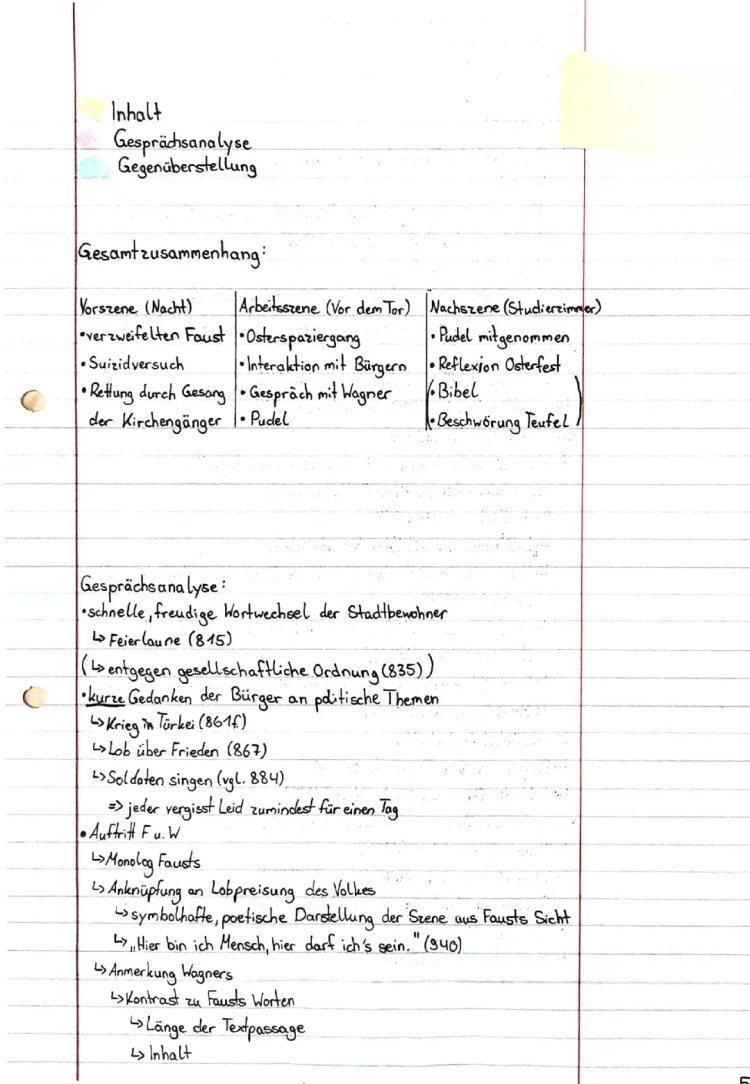 Inhalt
Gesprächsanalyse
Gegenüberstellung
Gesamtzusammenhang:
Vorszene (Nacht)
•verzweifelten Faust
•Suizidversuch
•Rettung durch Gesang
der Kirchengänger
Arbeitsszene (Vor dem Tor)
•Osterspaziergang
•Interaktion mit Bürgern
•Gespräch mit Wagner
•Pudel
Nachszene (Studierzimmer)
•Pudel mitgenommen
•Reflexion Osterfest
(•Bibel
•Beschwörung Teufel)
Gesprächsanalyse:
•schnelle, freudige Wortwechsel der Stadtbewohner
↳ Feierlaune (815)
(↳ entgegen gesellschaftliche Ordnung (835))
•kurze Gedanken der Bürger an politische Themen
↳ Krieg in Türkei (861f)
↳ Lob über Frieden (867)
↳ Soldaten singen (vgl. 884)
=> jeder vergisst Leid zumindest für einen Tag
•Auftritt F u. W
↳ Monolog Fausts
↳ Anknüpfung an Lobpreisung des Volkes
↳ symbolhafte, poetische Darstellung der Szene aus Fausts Sicht
↳ „Hier bin ich Mensch, hier darf ich's sein." (940)
↳ Anmerkung Wagners
↳ Kontrast zu Fausts Worten
↳ Länge der Textpassage
↳ Inhalt